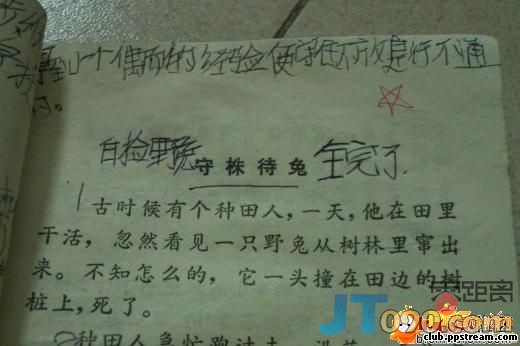 得到一个偶而的经验便守住不放是行不通
的。
白捡野兔 守株待兔 全完了.
古时候有个种田人，一天，他在田里
干活，忽然看见一只野兔从树林里窜出
来。不知怎么的，它一头撞在田边的树
桩上，死了。
零距离
JT090.com
种田人急忙跑过去
club.ppstream.com